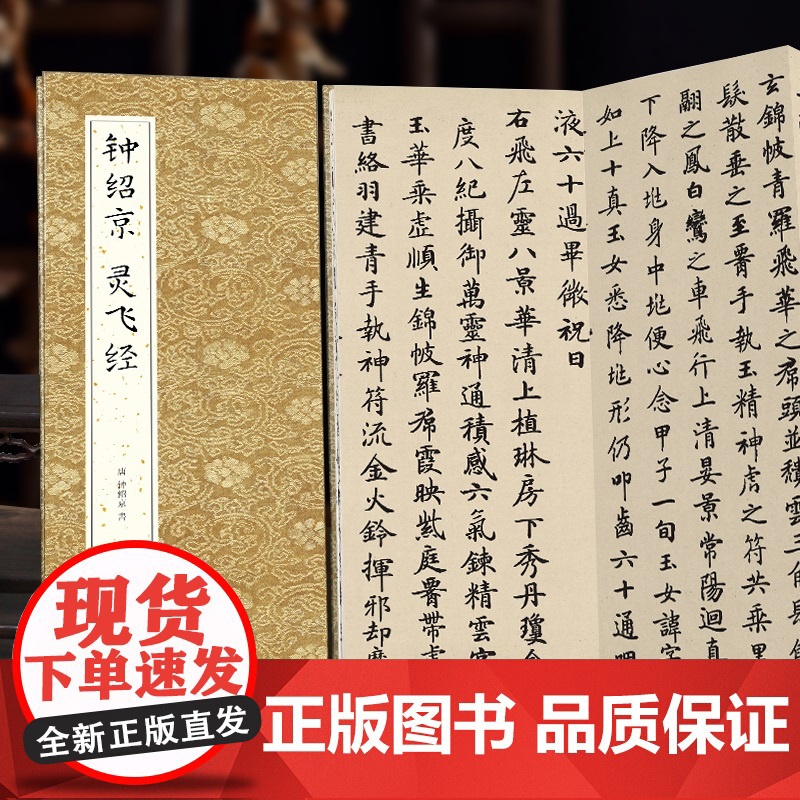 钟绍京 灵飞经
唐 钟绍京 书
玄錦帔青羅飛華之帬頭並積雲三角
髮散垂之至署手執玉精神虎之符共乘
翮之鳳白鸞之車飛行上清晏景常陽迴真
下降入兆身中兆便心念甲子一旬玉女諱字
如上十真玉女悉降兆形仍叩齒六十通
液六十過畢微祝曰
右飛左靈八景華清上植琳房下秀丹瓊
度八紀攝御萬靈神通積感六氣鍊精雲
玉華乘虛順生錦帔羅帬霞映紫庭署帶
書絡羽建青手執神符流金火鈴揮邪却
现货
全新正版直发
正版图书 品质保证